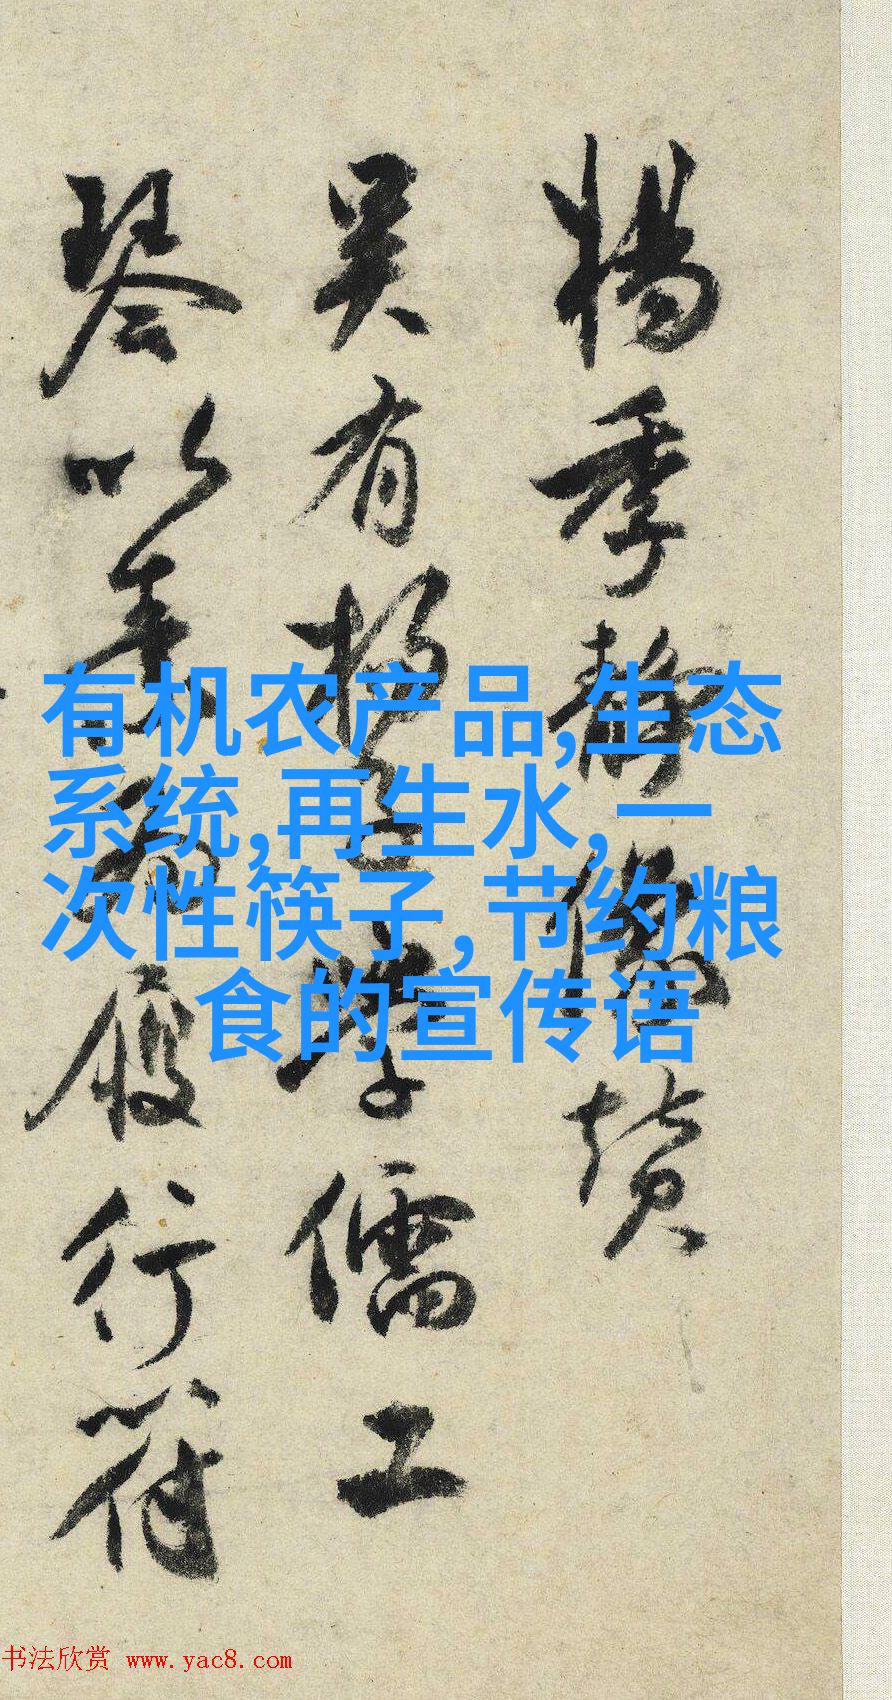 楊季靜像贊
吳有楊學儒工
琴以履行符
有机农产品,生态
系统,再生水,一
次性筷子,节约粮
食的宣传语
书法欣赏 www.yac8.com